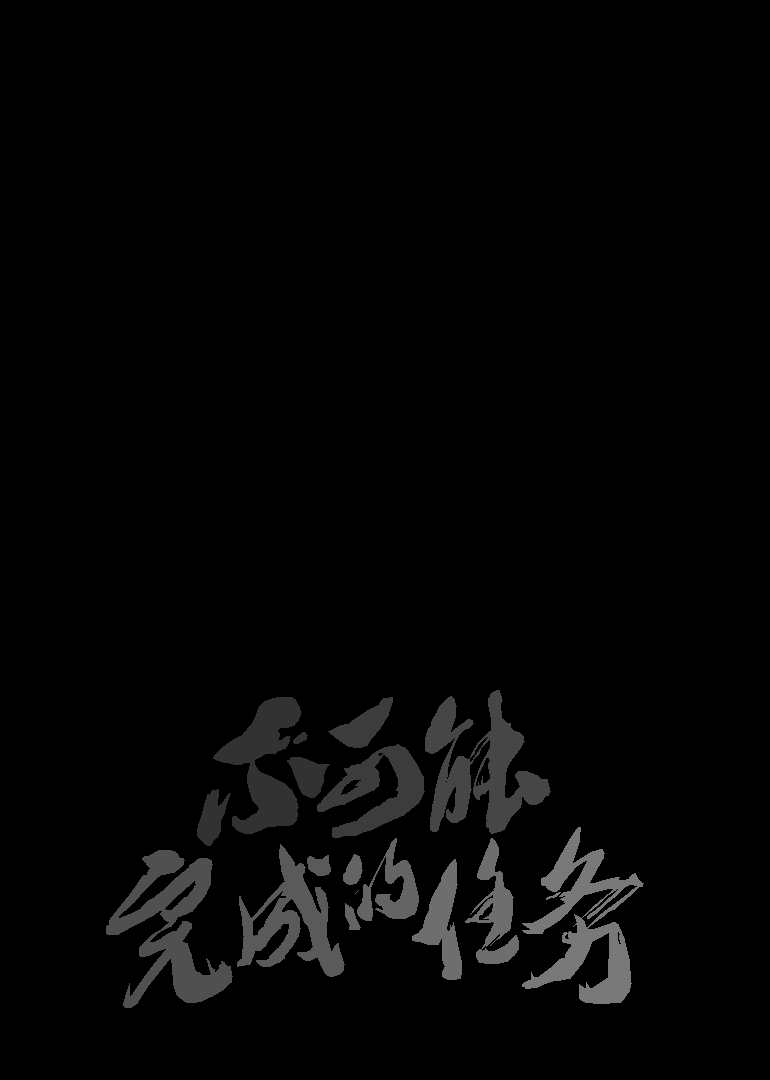 不可能
完成的任务